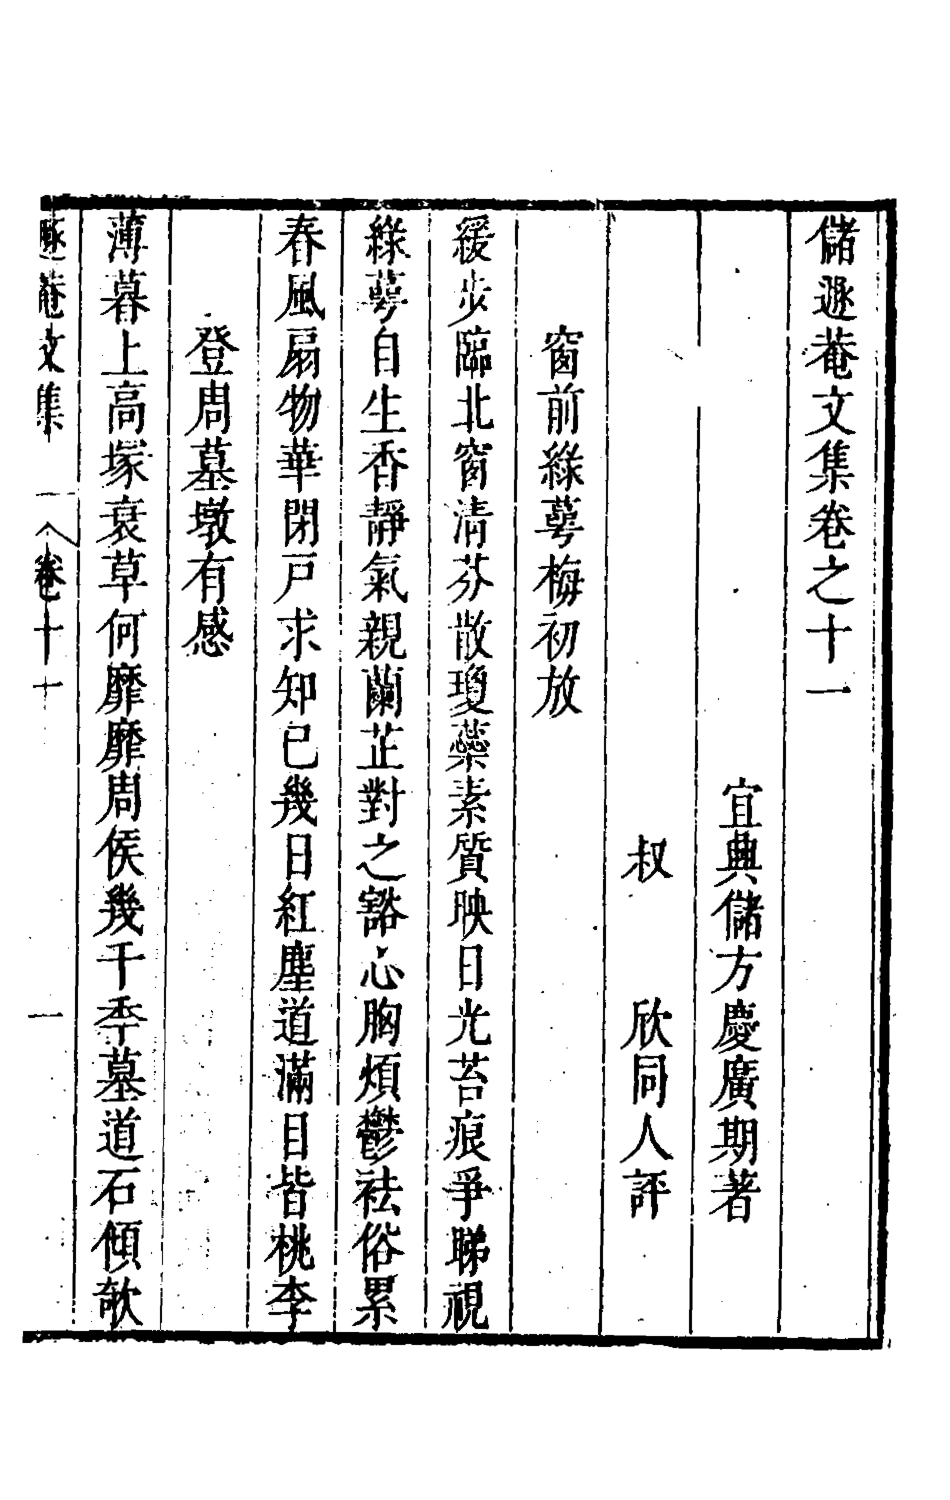 儲遯菴文集卷之十一
宜興儲方慶廣期著
叔　欣同人評
窗前綠萼梅初放
緩步臨北窗清芬散瓊蘂素質映日光苔痕爭睇視
綠萼自生香靜氣親蘭芷對之豁心胸煩鬱祛俗累
春風扇物華閉戸求知已幾日紅塵道滿目皆桃李
登周墓墩有感
薄暮上高塚衰草何靡靡周侯幾千秊墓道石傾欹
遯菴文集　卷十一　一